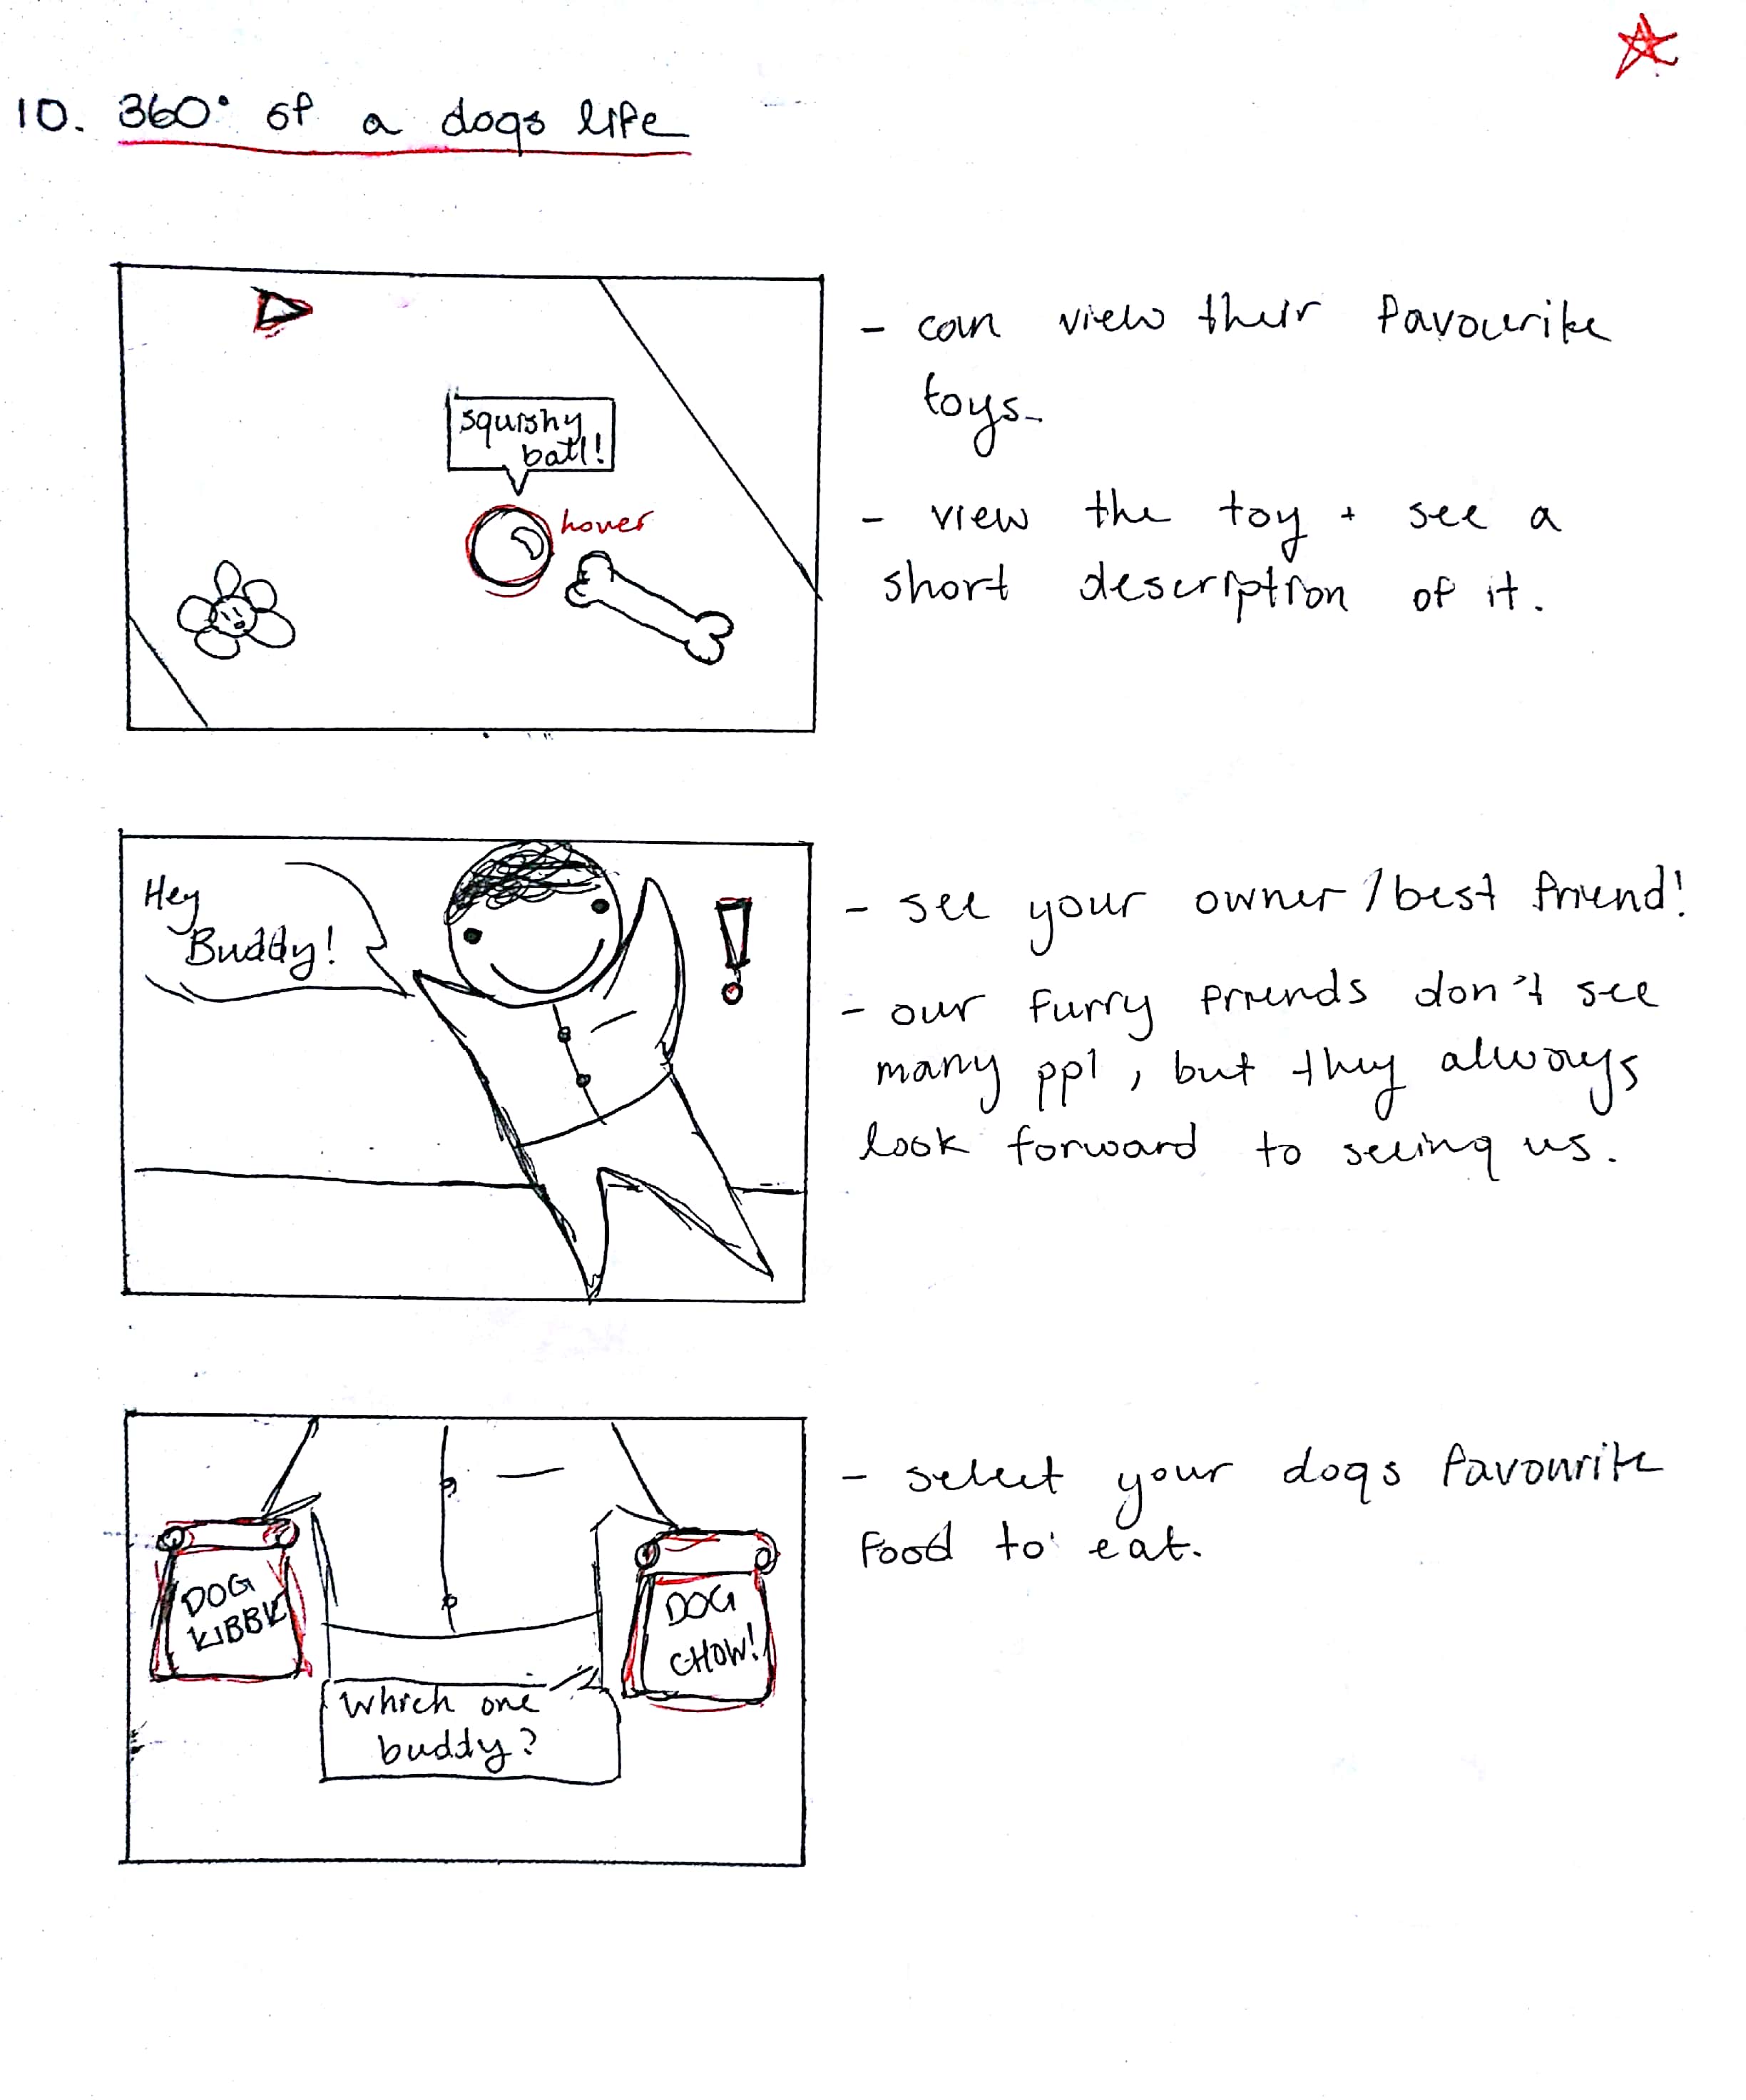 10. 360° of a dogs life
squishy
ball!
hover
- can view their favourite
toys.
- view the toy + see a
short description of it.
Hey
Buddy!
!
- see your owner / best friend!
- our furry friends don't see
many ppl, but they always
look forward to seeing us.
DOG
KIBBLE
DOG
CHOW!
Which one
buddy?
- select your dogs favourite
food to eat.